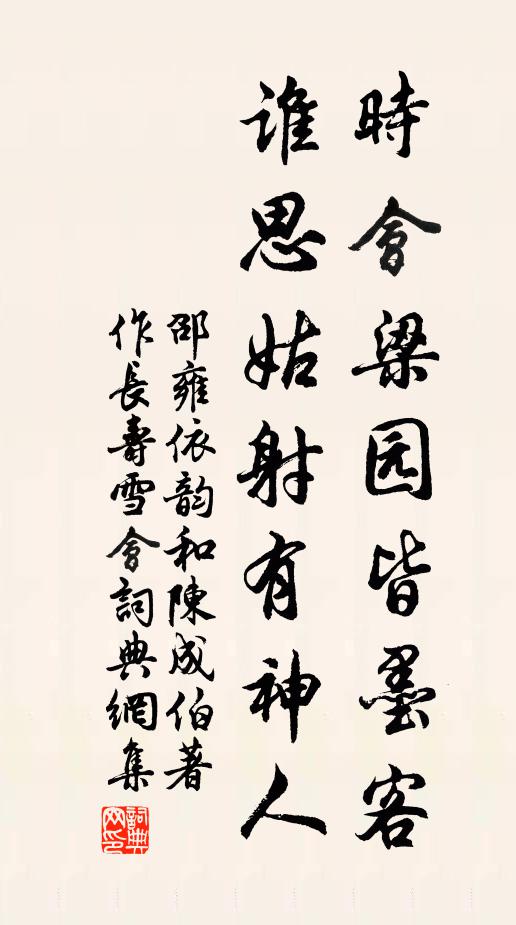 時會梁园皆墨客
誰思姑射有神人
邵雍依韵和陳成伯著
作長壽雪會詞典網集
詞典网印